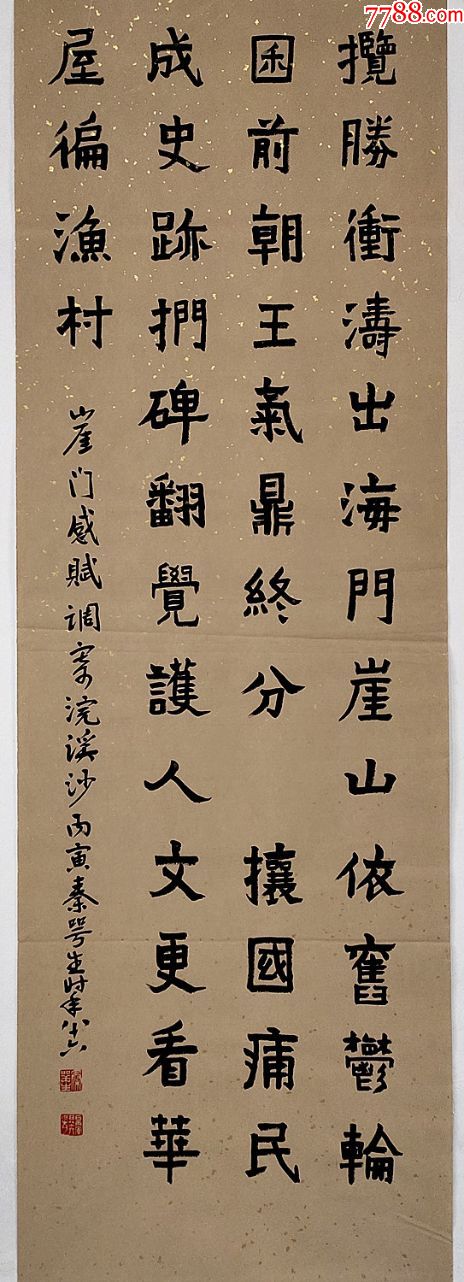 7788.com
攬勝衝濤出海門崖山依舊鬱輪
囷前朝王氣鼎終分 攘國痡民
成史跡捫碑翻覺護人文更看華
屋徧漁村
崖门感賦调寄浣溪沙丙寅秦咢生时年八十六